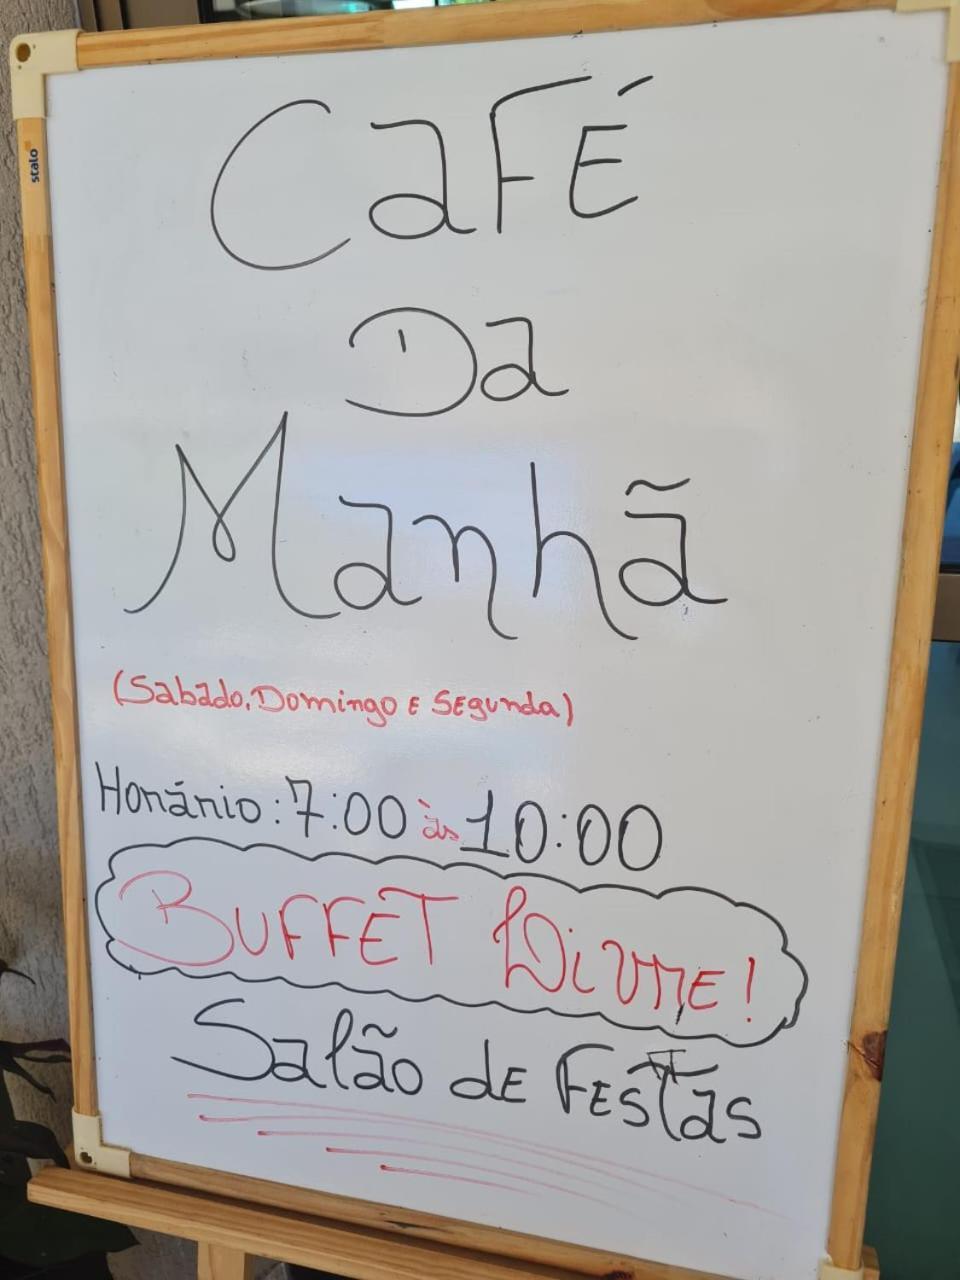 stalo
CaFÉ
Da
Manhã
(Sabado, Domingo E Segunda)
Horário: 7:00 às 10:00
BUFFET Livre!
Salão de Festas